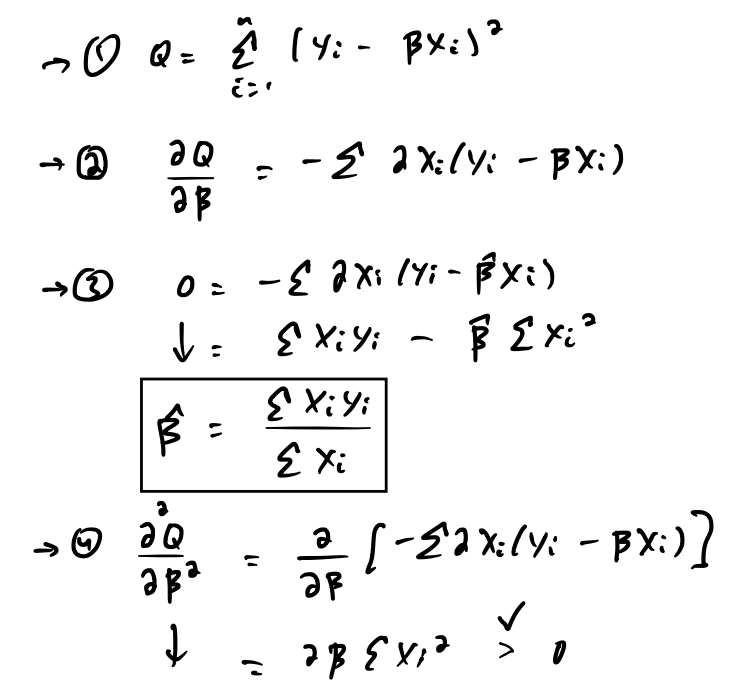 → ① Q = Σ_{i=1}^{n} (yᵢ − βxᵢ)²
→ ② ∂Q/∂β = −Σ 2xᵢ(yᵢ − βxᵢ)
→ ③ 0 = −Σ 2xᵢ(yᵢ − β̂xᵢ)
↓ = Σ xᵢyᵢ − β̂ Σ xᵢ²
β̂ = Σ xᵢyᵢ / Σ xᵢ
→ ④ ∂²Q/∂β² = ∂/∂β [−Σ 2xᵢ(yᵢ − βxᵢ)]
✓
↓ = 2β Σ xᵢ² > 0